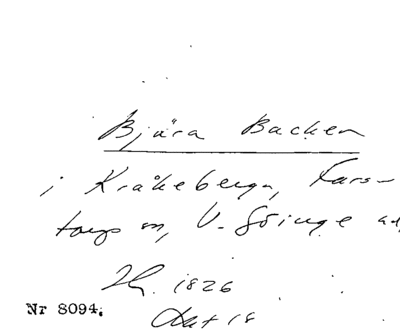 Bjära Backen
i Kråkeberga, Fars-
torps sn, V. Göinge
1826
Nr 8094.